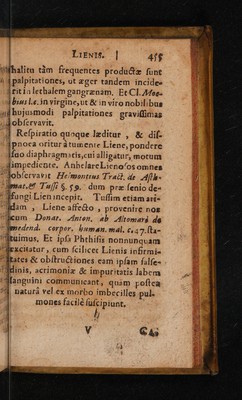 LIENIS. 455
halitu tàm frequentes productæ sunt
palpitationes, ut æger tandem incide-
rit in lethalem gangrænam. Et Cl. Moe-
bius l.c. in virgine, ut & in viro nobilibus
hujusmodi palpitationes gravissimas
observavit.
Respiratio quoque læditur, & dis-
pnoea oritur à tumente Liene, pondere
suo diaphragmatis, cui alligatur, motum
impediente. Anhelare Lienosos omnes
observavit Helmontius Tract. de Asth-
mat. & Tussi §. 59. dum præ senio de-
fungi Lien incepit. Tussim etiam ari-
dam, Liene affecto, provenire nos
cum Donat. Anton. ab Altomari de
medend. corpor. human. mal. c. 47. sta-
tuimus. Et ipsa Phthisis nonnunquam
excitatur, cum scilicet Lienis infirmi-
tates & obstructiones eam ipsam salse-
dinis, acrimoniæ & impuritatis labem
sanguini communicant, quam postea
naturâ vel ex morbo imbecilles pul-
mones facilè suscipiunt.
V CA-